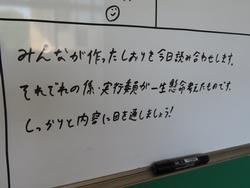 みんなが作ったしおりを今日読み合わせします。
それぞれの係・実行委員が一生懸命考えたものです。
しっかりと内容に目を通しましょう!